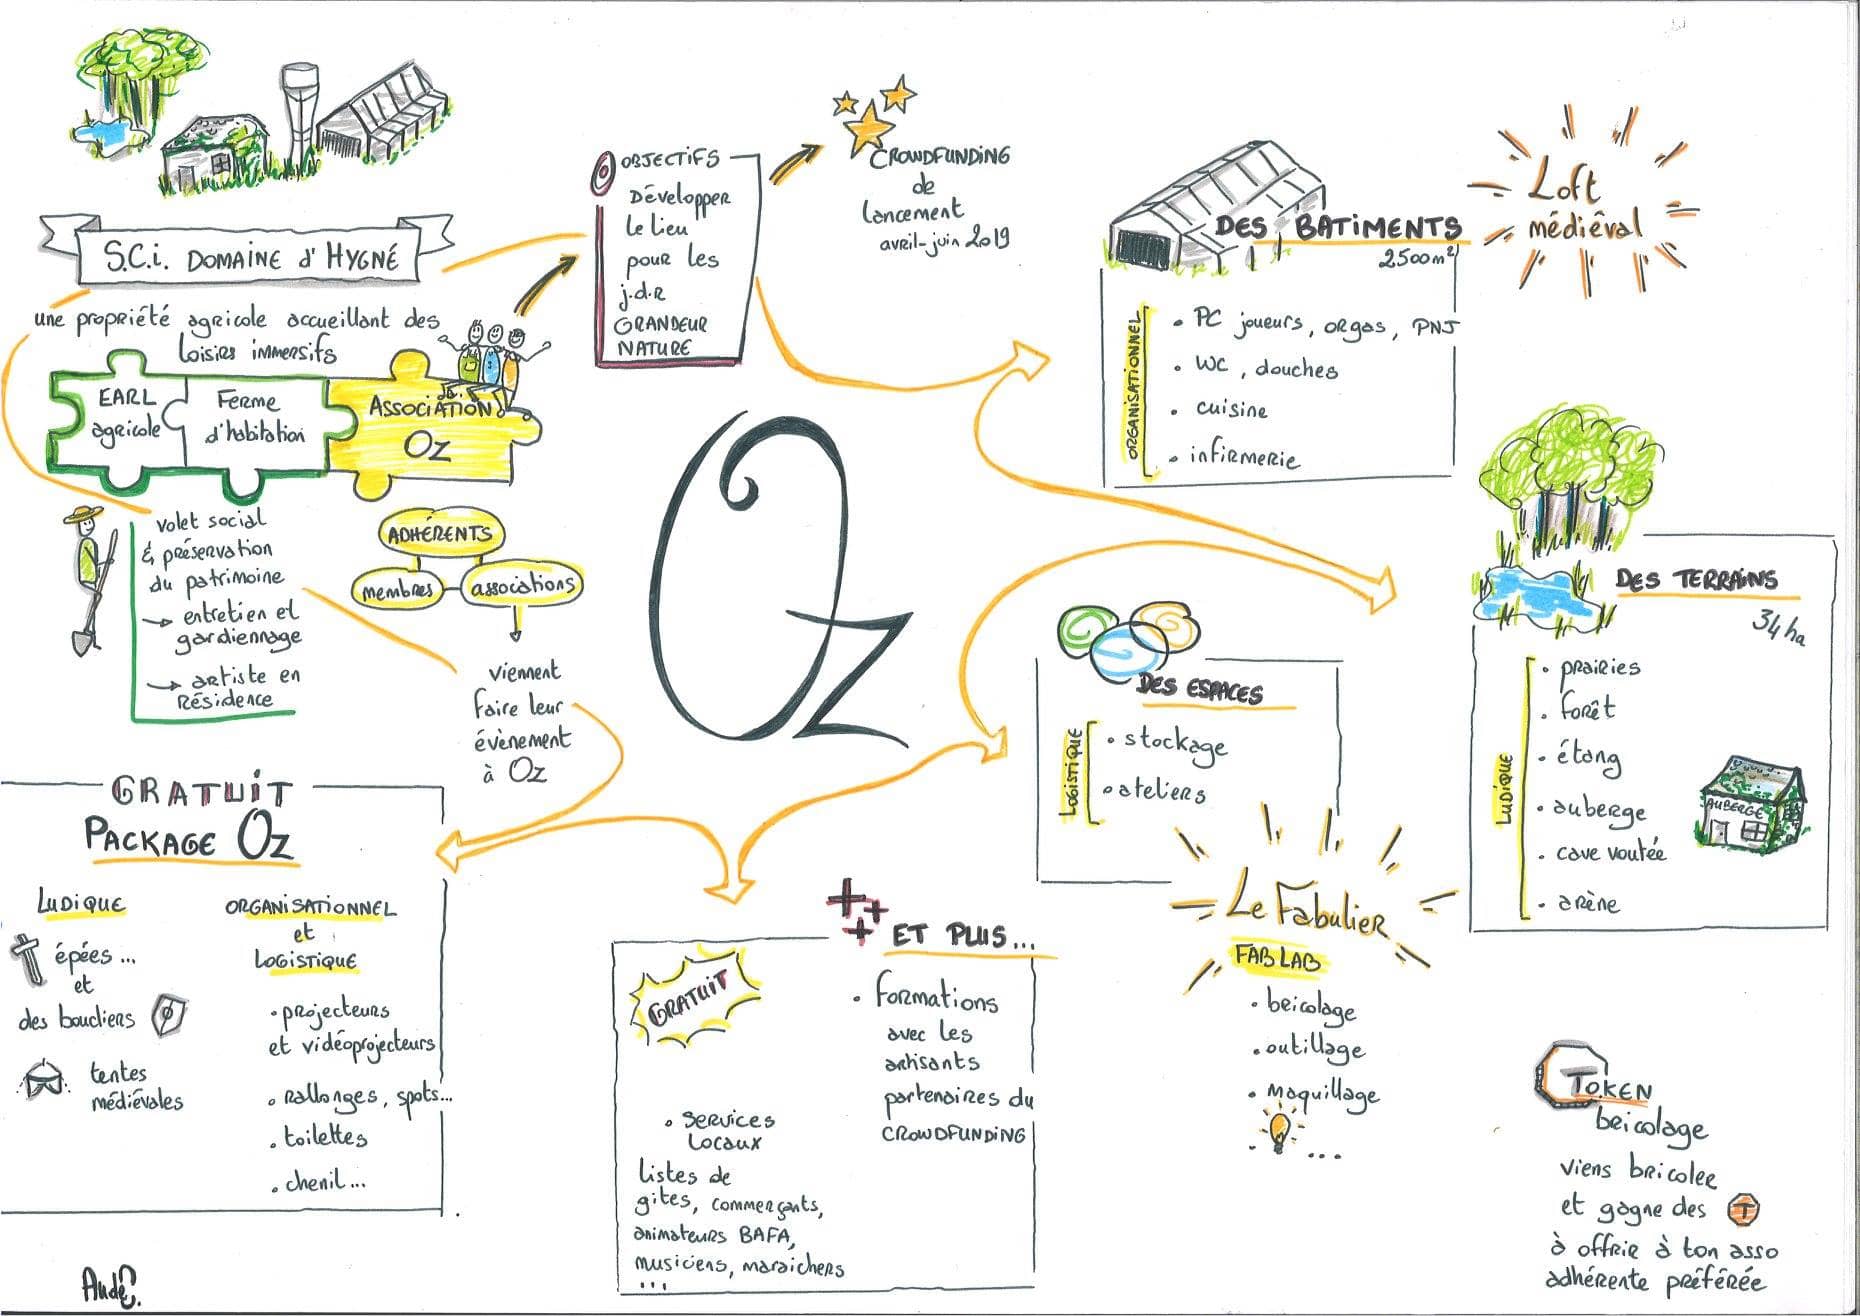 S.C.i. DOMAINE d'HYGNÉ
une propriété agricole accueillant des
loisirs immersifs
EARL
agricole
Ferme
d'habitation
ASSOCIATION
OZ
volet social
& préservation
du patrimoine
→ entretien et
gardiennage
→ artiste en
Résidence
ADHÉRENTS
membres
associations
viennent
faire leur
évènement
à Oz
OBJECTIFS
Développer
le lieu
pour les
j.d.r
GRANDEUR
NATURE
CROWDFUNDING
de
lancement
avril-juin 2019
Oz
DES BATIMENTS
2500m²
ORGANISATIONNEL
• PC joueurs, orgas, PNJ
• WC, douches
• cuisine
• infirmerie
Loft
médiéval
DES TERRAINS
34 ha
LUDIQUE
• prairies
• forêt
• étang
• auberge
• cave voutée
• arène
AUBERGE
DES ESPACES
LOGISTIQUE
• stockage
• ateliers
Le Fabulier
FABLAB
• bricolage
• outillage
• maquillage
• ...
GRATUIT
PACKAGE OZ
LUDIQUE
épées ...
et
des boucliers
tentes
médiévales
ORGANISATIONNEL
et
LOGISTIQUE
• projecteurs
et vidéoprojecteurs
• rallonges, spots...
• toilettes
• chenil...
ET PLUS...
GRATUIT
• Services
Locaux
Listes de
gites, commerçants,
animateurs BAFA,
musiciens, maraichers
...
• formations
avec les
artisants
partenaires du
CROWDFUNDING
TOKEN
bricolage
viens bricoler
et gagne des T
à offrir à ton asso
adhérente préférée
AudeC.